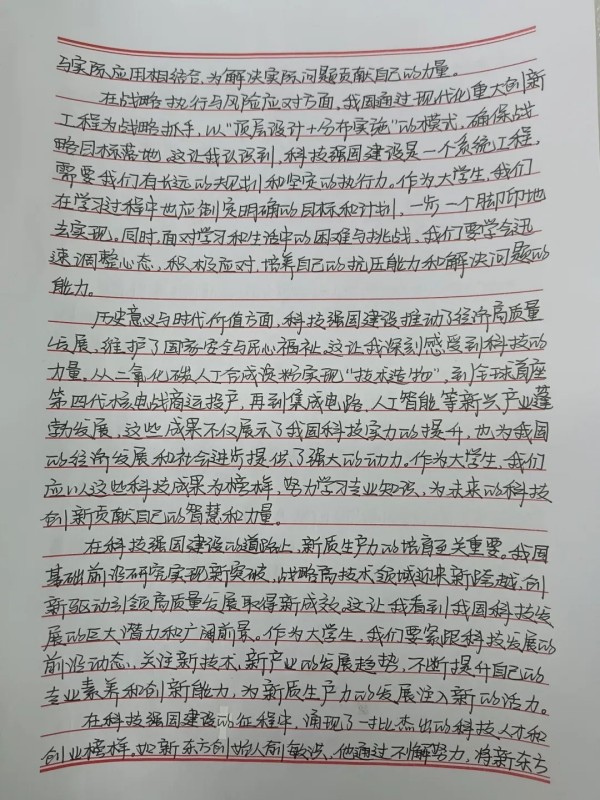 与实际应用相结合,为解决实际问题贡献自己的力量。
在战略执行与风险应对方面,我国通过现代化重大创新
工程为战略抓手,以“顶层设计+分布实施”的模式,确保战
略目标落地。这让我认识到,科技强国建设是一个系统工程,
需要我们有长远的规划和坚定的执行力。作为大学生,我们
在学习过程中也应制定明确的目标和计划,一步一个脚印地
去实现。同时,面对学习和生活中的困难与挑战,我们要学会迅
速调整心态,积极应对,培养自己的抗压能力和解决问题的
能力。
历史意义与时代价值方面,科技强国建设推动了经济高质量
发展,维护了国家安全与民心福祉。这让我深刻感受到科技的
力量。从二氧化碳人工合成淀粉实现“技术造物”,到全球首座
第四代核电战商运投产,再到集成电路、人工智能等新兴产业蓬
勃发展,这些成果不仅展示了我国科技实力的提升,也为我国
的经济发展和社会进步提供了强大的动力。作为大学生,我们
应以这些科技成果为榜样,努力学习专业知识,为未来的科技
创新贡献自己的智慧和力量。
在科技强国建设的道路上,新质生产力的培育至关重要。我国
基础前沿研究实现新突破,战略高技术领域迎来新跨越,创
新驱动引领高质量发展取得新成效。这让我看到我国科技发
展的巨大潜力和广阔前景。作为大学生,我们要紧跟科技发展的
前沿动态,关注新技术、新产业的发展趋势,不断提升自己的
专业素养和创新能力,为新质生产力的发展注入新的活力。
在科技强国建设的征程中,涌现了一批杰出的科技人才和
创业榜样。如新东方创始人俞敏洪,他通过不懈努力,将新东方